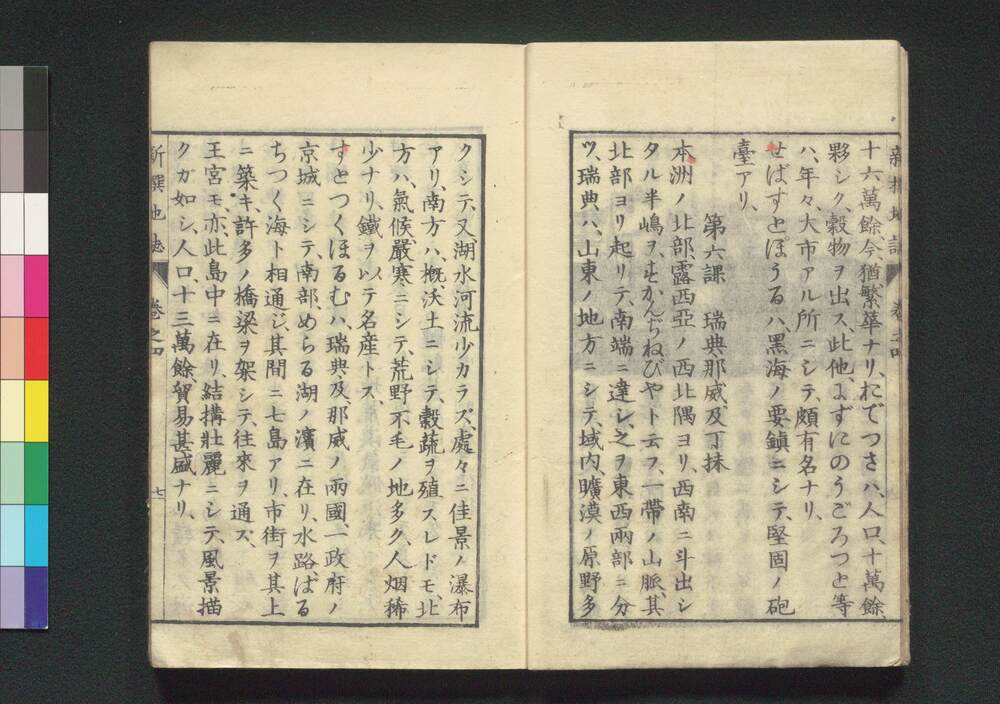 十六萬餘今猶繁華ナリ、れでつさハ、人口、十萬餘、
夥シク、穀物ヲ出ス、此他、よずにのうごろつと等
ハ、年々、大市アル所ニシテ、頗有名ナリ、
せばすとぽうるハ、黑海ノ要鎮ニシテ、堅固ノ砲
臺アリ、
第六課 瑞典那威、及丁抹
本洲ノ北部、露西亞ノ西北隅ヨリ、西南ニ斗出シ
タル半嶋ヲ、すかんぢねびやト云フ、一帶ノ山脈、其
北部ヨリ起リテ、南端ニ達シ、之ヲ東西兩部ニ分
ツ、瑞典ハ、山東ノ地方ニシテ、域内、曠漠ノ原野多
クシテ、又、湖水河流少カラズ、處々ニ佳景ノ瀑布
アリ、南方ハ、概沃土ニシテ、穀蔬ヲ殖スレドモ、北
方ハ、氣候、嚴寒ニシテ、荒野不毛ノ地多ク、人烟稀
少ナリ、鐵ヲ以テ名産トス、
すとつくほるむハ、瑞典及那威ノ兩國、一政府ノ
京城ニシテ、南部、めらる湖ノ濱ニ在リ、水路、ばる
ちつく海ト相通ジ、其間ニ七島アリ、市街ヲ其上
ニ築キ、許多ノ橋梁ヲ架シテ、往來ヲ通ズ、
王宮モ、亦、此島中ニ在リ、結構壯麗ニシテ、風景描
クガ如シ、人口、十三萬餘、貿易甚盛ナリ、
新撰地誌 卷之四 七